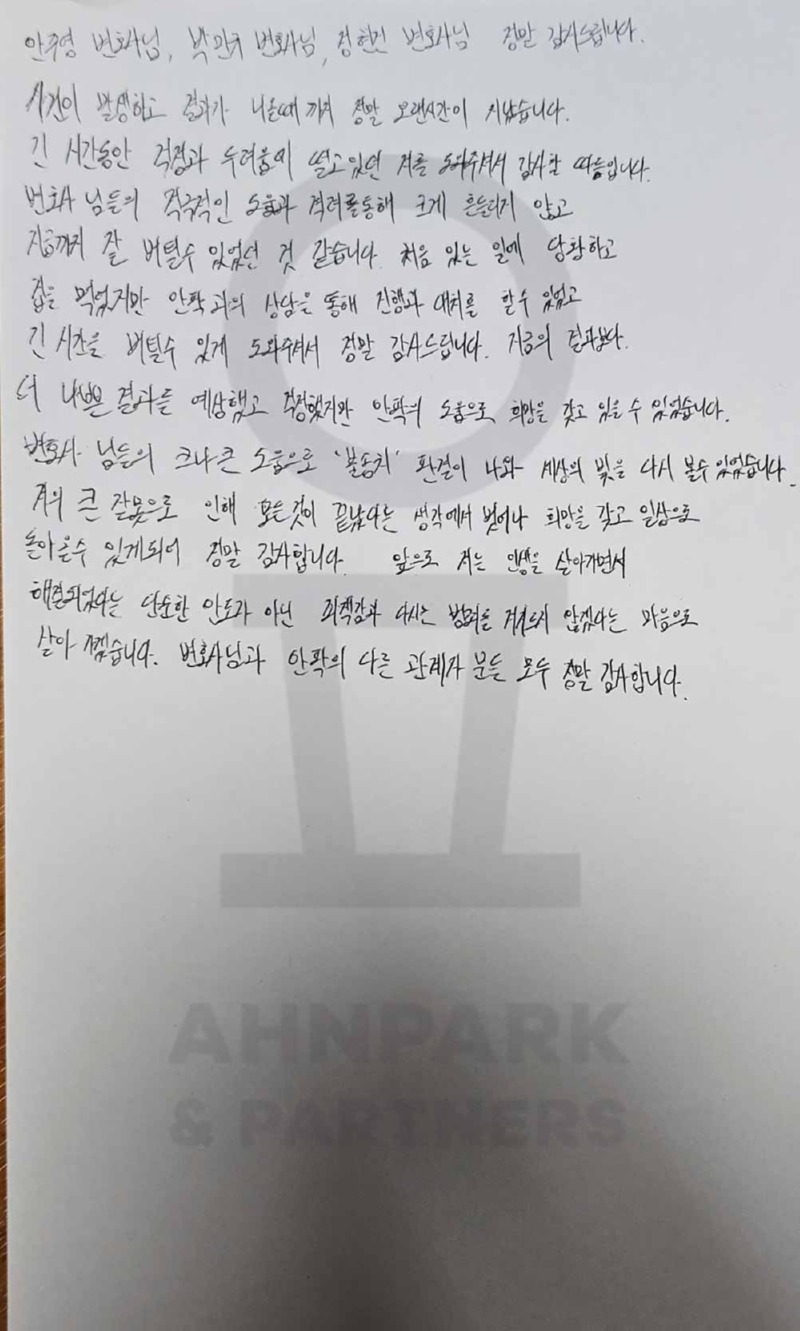 안주영 변호사님, 박민규 변호사님, 정현진 변호사님 정말 감사드립니다.
사건이 발생하고 결과가 나올때 까지 정말 오랜시간이 지났습니다.
긴 시간동안 걱정과 두려움에 떨고있던 저를 도와주셔서 감사할 따름입니다.
변호사 님들의 적극적인 도움과 격려를통해 크게 흔들리지 않고
지금까지 잘 버틸수 있었던 것 같습니다. 처음 있는 일에 당황하고
겁을 먹었지만 안팍과의 상담을 통해 진행과 대처를 할수 있었고
긴 시간을 버틸수 있게 도와주셔서 정말 감사드립니다. 지금의 결과보다.
더 나쁜 결과를 예상했고 걱정했지만 안팍의 도움으로 희망을 갖고 있을 수 있었습니다.
변호사 님들의 크나큰 도움으로 '불송치' 판결이 나와 세상의 빛을 다시 볼수 있었습니다.
저의 큰 잘못으로 인해 모든것이 끝났다는 생각에서 벗어나 희망을 갖고 일상으로
돌아올수 있게되어 정말 감사합니다. 앞으로 저는 인생을 살아가면서
해결되었다는 단순한 안도가 아닌 죄책감과 다시는 범죄를 저지르지 않겠다는 마음으로
살아 가겠습니다. 변호사님과 안팍의 다른 관계자 분들 모두 정말 감사합니다.
AHNPARK
& PARTNERS